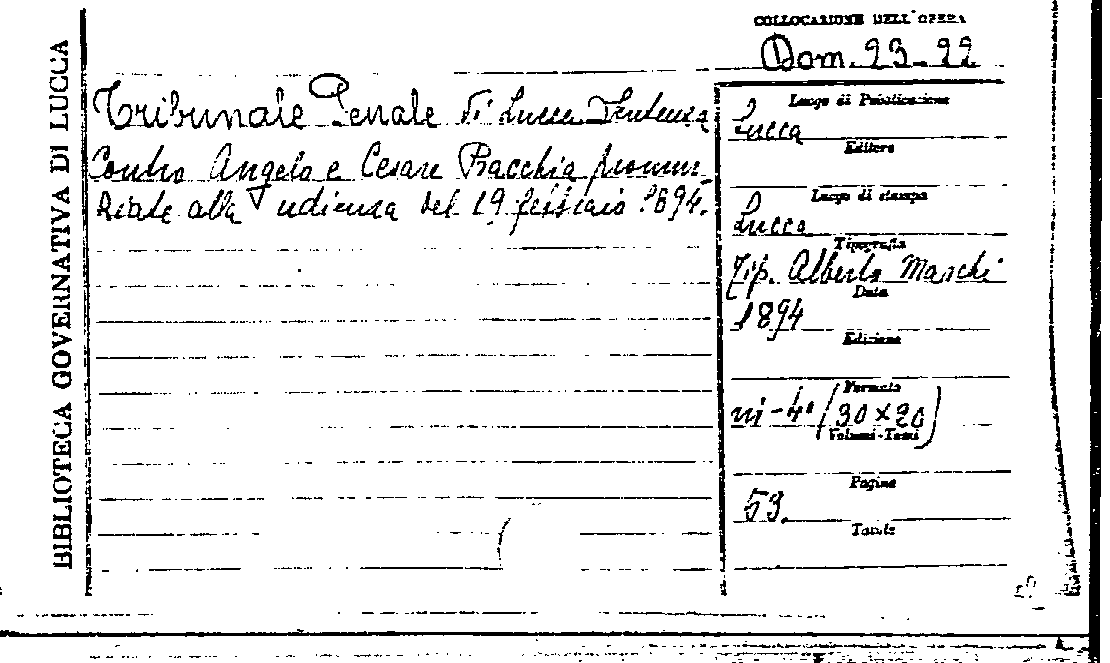 BIBLIOTECA GOVERNATIVA DI LUCCA
COLLOCAZIONE DELL'OPERA
Dom. 23-22
Tribunale Penale di Lucca Sentenza
Contro Angelo e Cesare Bacchia pronun-
ziate alla udienza del 19 febbraio 1894.
Luogo di Pubblicazione
Lucca
Editore
Luogo di stampa
Lucca
Tipografia
Tip. Alberto Marchi
Data
1894
Edizione
Formato
in-4° (30×20)
Volumi-Tomi
Pagine
53.
Tavole